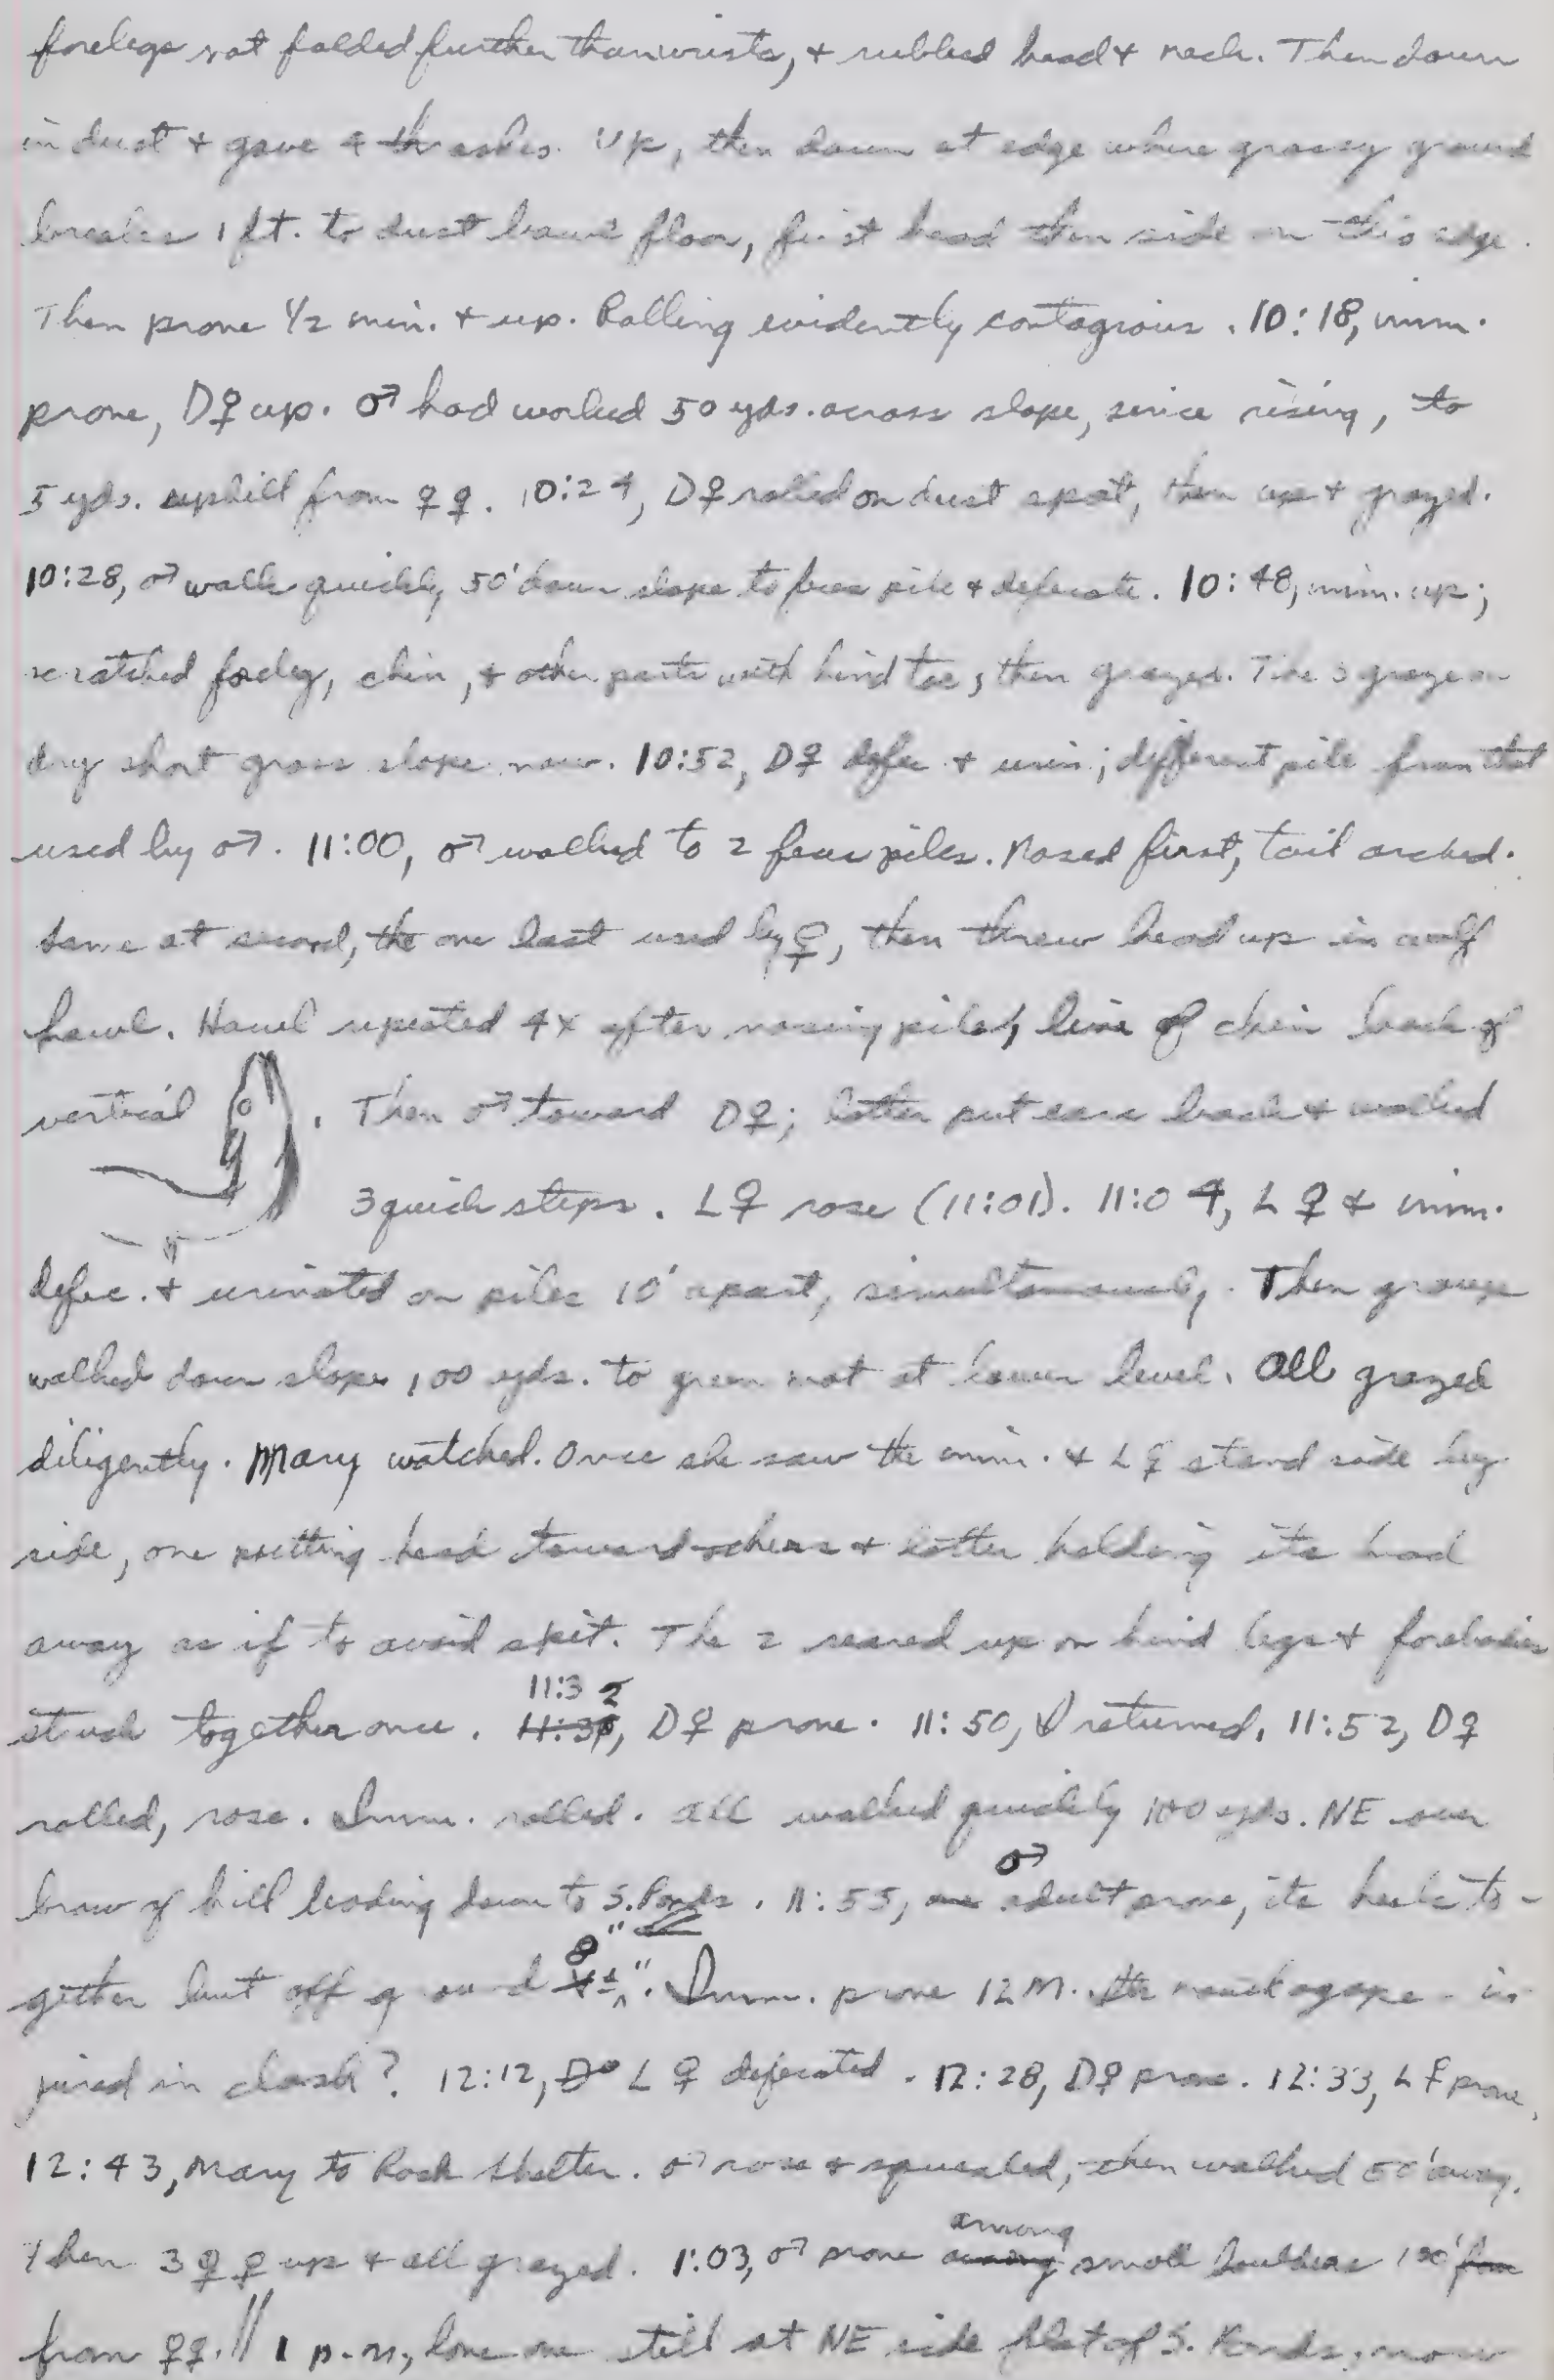 forelegs not folded further than wrists, + rubbed head + neck. Then down
in dust + gave 4 thrashes. Up, then down at edge where grassy ground
breaks 1 ft. to dust bowl floor, first head then side on this edge.
Then prone 1/2 min. + up. Rolling evidently contagious. 10:18, imm.
prone, D♀ up. ♂ had worked 50 yds. across slope, since rising, to
5 yds. uphill from ♀♀. 10:24, D♀ rolled on dust spot, then up + grazed.
10:28, ♂ walk quickly 50' down slope to feces pile + defecate. 10:48, imm. up;
scratched foreleg, chin, + other parts with hind toe, then grazed. The 3 graze on
dry short grass slope now. 10:52, D♀ defec + urin; different pile from that
used by ♂. 11:00, ♂ walked to 2 feces piles. Nosed first, tail arched.
Same at second, the one last used by ♀, then threw head up in wolf
howl. Howl repeated 4x after nosing piles, line of chin back of
vertical. Then ♂ toward D♀; latter put ears back + walked
3 quick steps. L♀ rose (11:01). 11:04, L♀ + imm.
defec. + urinated on piles 10' apart, simultaneously. Then group
walked down slope 100 yds. to green mat at lower level. All grazed
diligently. Mary watched. Once she saw the imm. + L♀ stand side by
side, one putting head toward others + latter holding its head
away as if to avoid spit. The 2 reared up on hind legs + forebodies
struck together once. 11:32, D♀ prone. 11:50, I returned. 11:52, D♀
rolled, rose. Imm. rolled. All walked quickly 100 yds. NE over
brow of hill leading down to S. Ponds. 11:55, ♂ adult prone, its heels to-
gether but off ground 8". Imm. prone 12 M. mouth agape - in-
jured in clash? 12:12, L♀ defecated. 12:28, D♀ prone. 12:33, L♀ prone.
12:43, Mary to Rock Shelter. ♂ rose + squealed, then walked 50' away.
Then 3 ♀♀ up + all grazed. 1:03, ♂ prone among small boulders 100'
from ♀♀. // 1 p.m., lone one still at NE side flat of S. Ponds; now